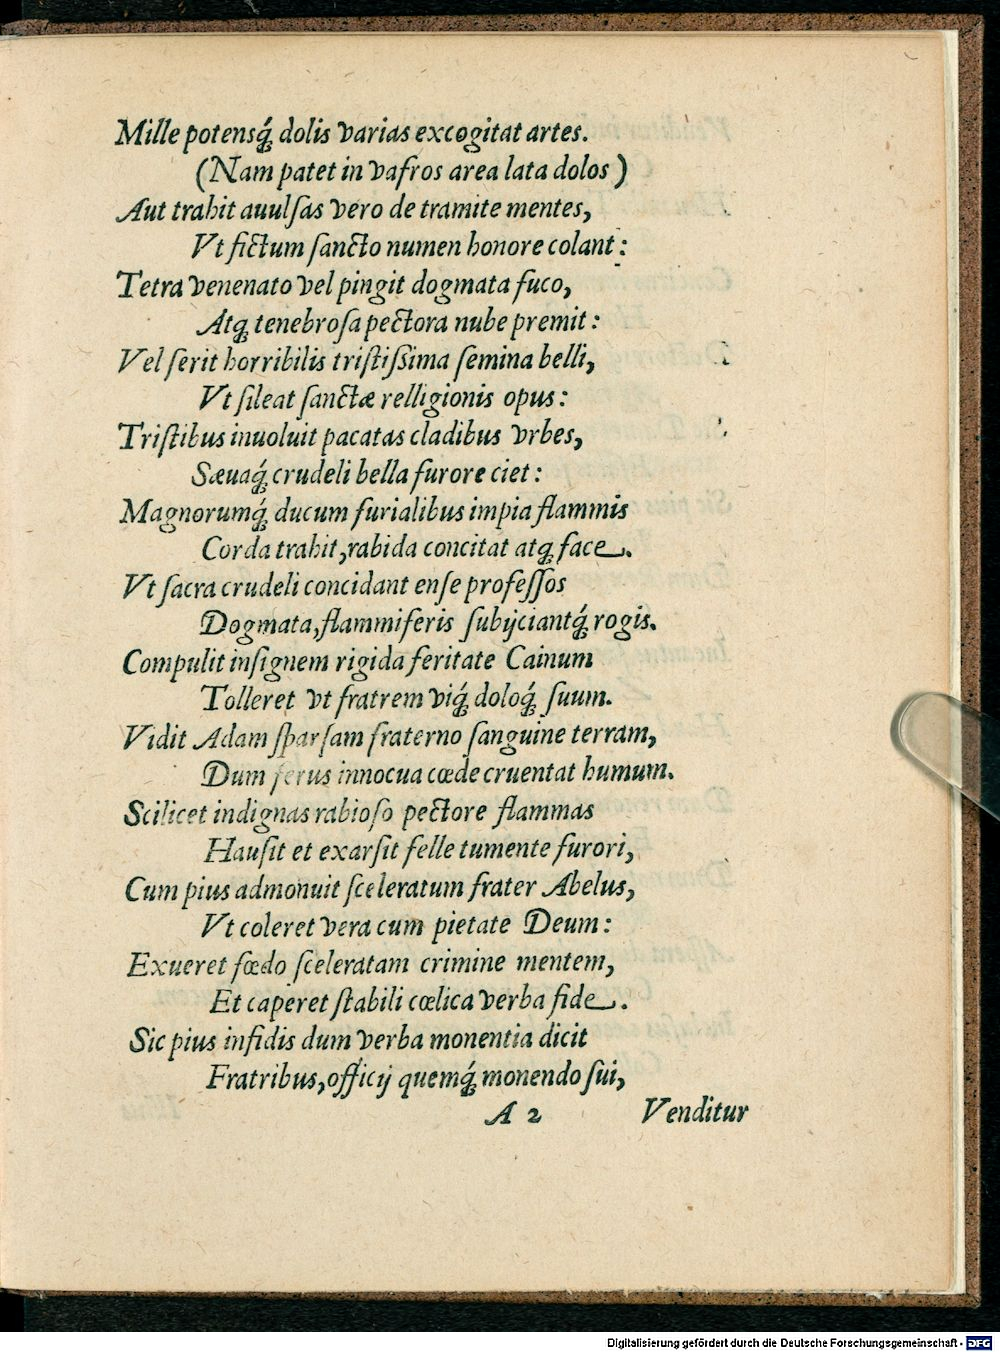 Mille potensq́; dolis varias excogitat artes.
(Nam patet in vafros area lata dolos)
Aut trahit auulſas vero de tramite mentes,
Vt fictum ſancto numen honore colant:
Tetra venenato vel pingit dogmata fuco,
Atq; tenebroſa pectora nube premit:
Vel ſerit horribilis triſtiſsima ſemina belli,
Vt ſileat ſanctæ relligionis opus:
Triſtibus inuoluit pacatas cladibus vrbes,
Sæuaq́; crudeli bella furore ciet:
Magnorumq́; ducum furialibus impia flammis
Corda trahit, rabida concitat atq; face.
Vt ſacra crudeli concidant enſe profeſſos
Dogmata, flammiferis ſubijciantq́; rogis.
Compulit inſignem rigida feritate Cainum
Tolleret vt fratrem viq́; doloq́; ſuum.
Vidit Adam ſparſam fraterno ſanguine terram,
Dum ferus innocua cæde cruentat humum.
Scilicet indignas rabioſo pectore flammas
Hauſit et exarſit felle tumente furori,
Cum pius admonuit ſceleratum frater Abelus,
Vt coleret vera cum pietate Deum:
Exueret fœdo ſceleratam crimine mentem,
Et caperet ſtabili cœlica verba fide.
Sic pius infidis dum verba monentia dicit
Fratribus, officij quemq́; monendo ſui,
A 2 Venditur
Digitalisierung gefördert durch die Deutsche Forschungsgemeinschaft - DFG